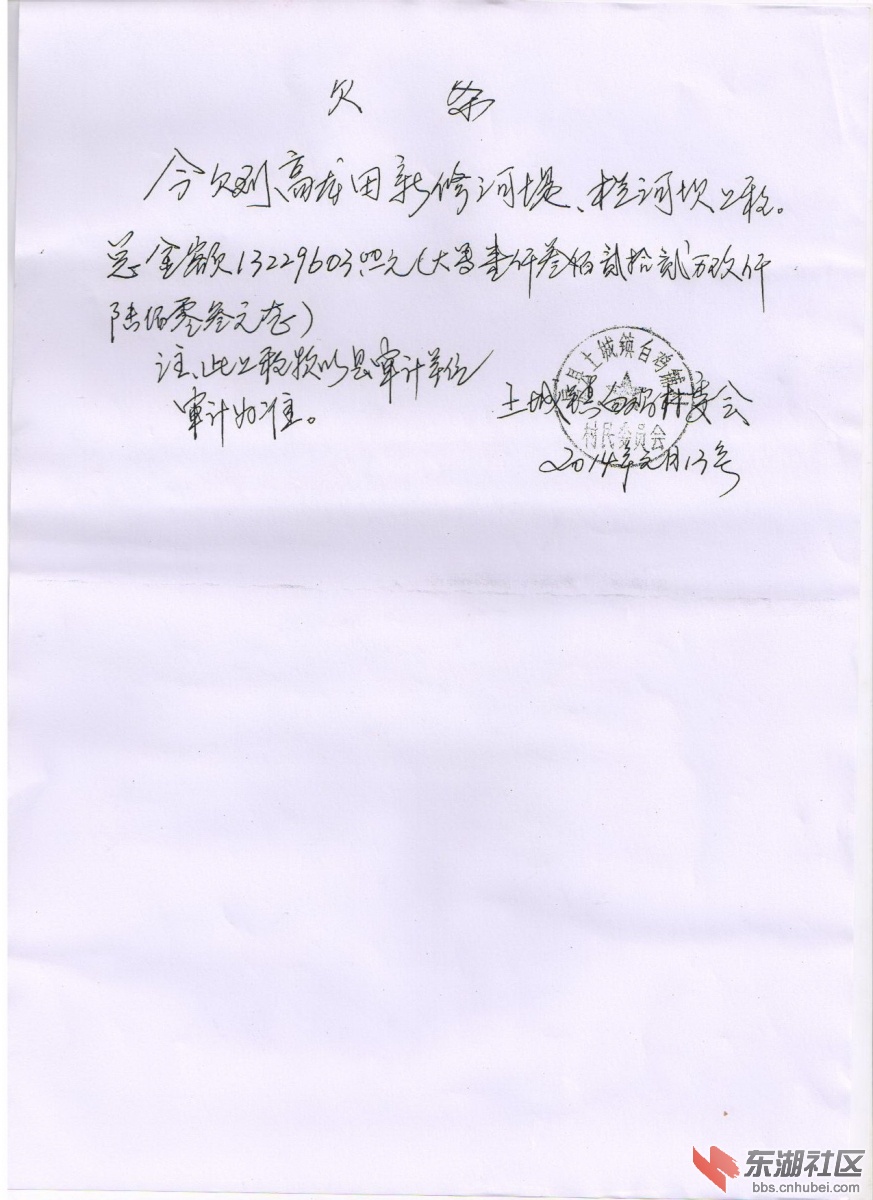 欠 条
今欠到高龙田新修河堤、栏河坝工程。
总金额13229603.00元(大写壹仟叁佰贰拾贰万玖仟
陆佰零叁元整)
注、此工程款以县审计单位
审计为准。
县土城镇白鸡铺
村民委员会
土城镇白鸡 村委会
2014年元月13号
东湖社区
bbs.cnhubei.com